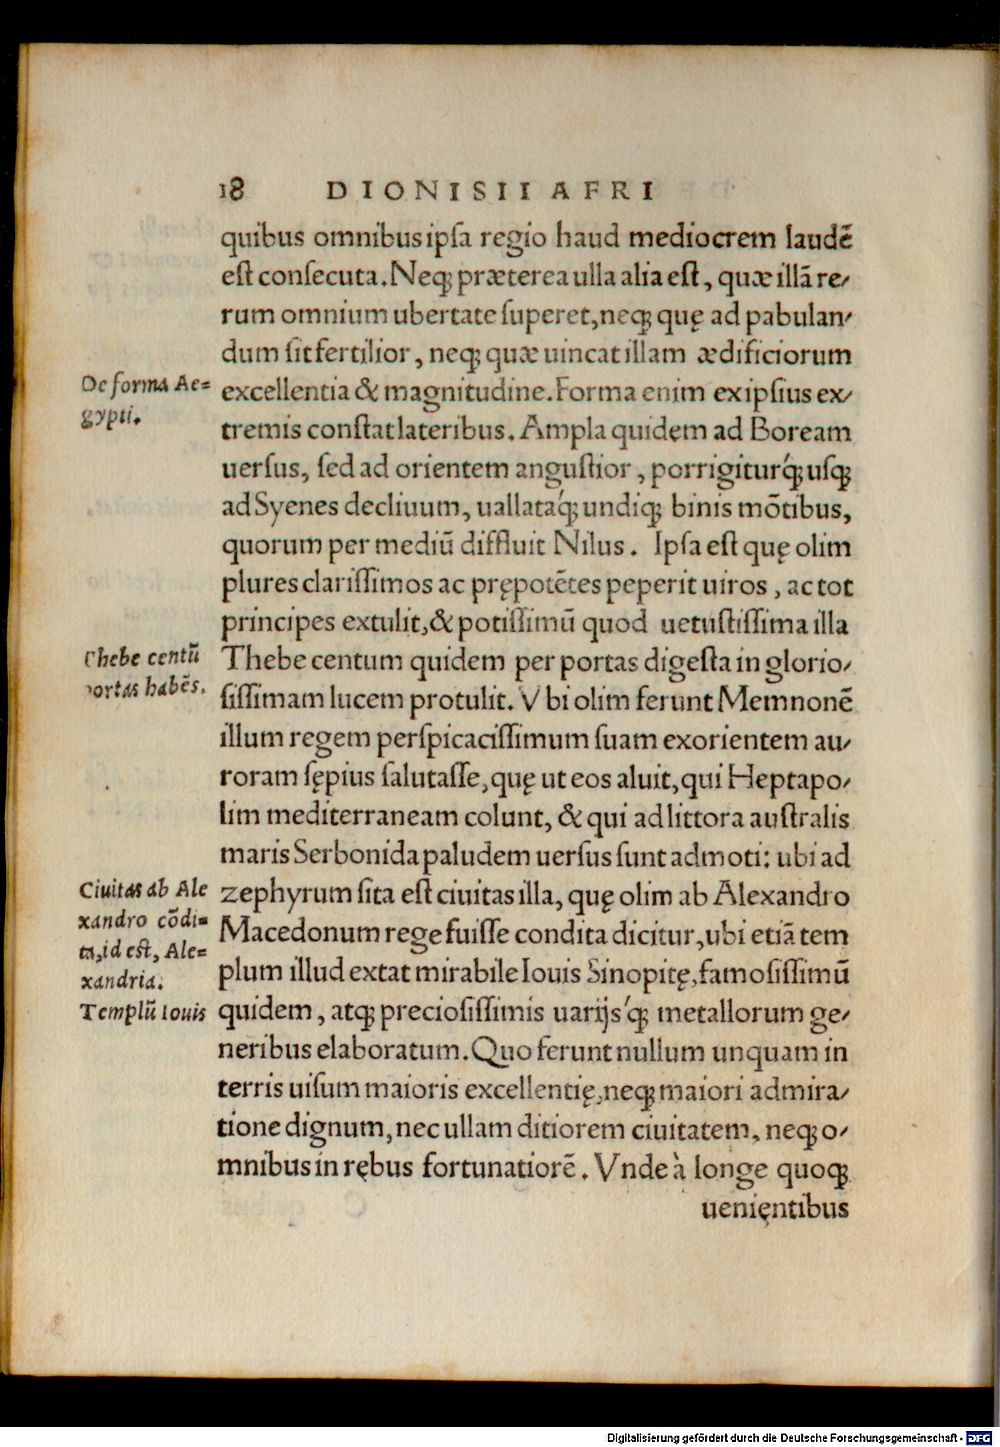 18 DIONISII AFRI
quibus omnibus ipſa regio haud mediocrem laudē
eſt conſecuta. Neq; præterea ulla alia eſt, quæ illā re/
rum omnium ubertate ſuperet, neq; quę ad pabulan/
dum ſit fertilior, neq; quæ uincat illam ædificiorum
De forma Ae=
gypti.
excellentia & magnitudine. Forma enim ex ipſius ex/
tremis conſtat lateribus. Ampla quidem ad Boream
uerſus, ſed ad orientem anguſtior, porrigiturq́; uſq;
ad Syenes decliuum, uallataq́; undiq; binis mōtibus,
quorum per mediū diffluit Nilus. Ipſa eſt quę olim
plures clariſſimos ac prępotētes peperit uiros, ac tot
principes extulit, & potiſſimū quod uetuſtiſſima illa
Thebe centū
portas habēs.
Thebe centum quidem per portas digeſta in glorio/
ſiſſimam lucem protulit. Vbi olim ferunt Memnonē
illum regem perſpicaciſſimum ſuam exorientem au/
roram ſępius ſalutaſſe, quę ut eos aluit, qui Heptapo/
lim mediterraneam colunt, & qui ad littora auſtralis
maris Serbonida paludem uerſus ſunt admoti: ubi ad
Ciuitas ab Ale
xandro cōdi=
ta, id est, Ale=
xandria.
Templū Iouis
zephyrum ſita eſt ciuitas illa, quę olim ab Alexandro
Macedonum rege fuiſſe condita dicitur, ubi etiā tem
plum illud extat mirabile Iouis Sinopitę, famoſiſſimū
quidem, atq; precioſiſſimis uarijsq́; metallorum ge/
neribus elaboratum. Quo ferunt nullum unquam in
terris uiſum maioris excellentię, neq; maiori admira/
tione dignum, nec ullam ditiorem ciuitatem, neq; o/
mnibus in rębus fortunatiorē. Vnde à longe quoq;
uenięntibus
Digitalisierung gefördert durch die Deutsche Forschungsgemeinschaft - DFG